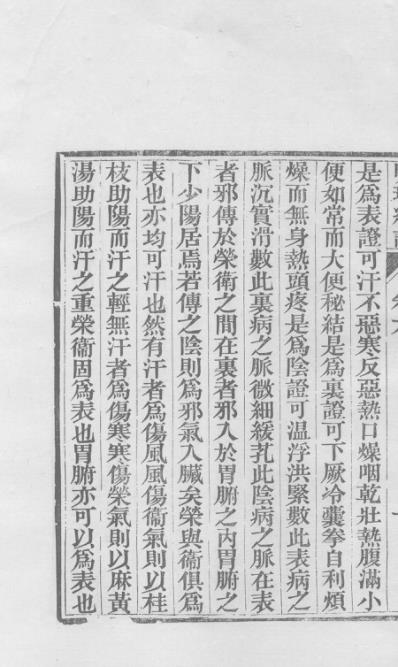 是爲表證可汗不惡寒反惡熱口燥咽乾壯熱腹滿小
便如常而大便秘結是爲裏證可下厥冷囊拳自利煩
燥而無身熱頭疼是爲陰證可温浮洪緊數此表病之
脈沉實滑數此裏病之脈微細緩芤此陰病之脈在表
者邪傳於榮衛之間在裏者邪入於胃腑之內胃腑之
下少陽居焉若傳之陰則爲邪氣入臟矣榮與衞俱爲
表也亦均可汗也然有汗者爲傷風風傷衞氣則以桂
枝助陽而汗之輕無汗者爲傷寒寒傷榮氣則以麻黃
湯助陽而汗之重榮衞固爲表也胃腑亦可以爲表也